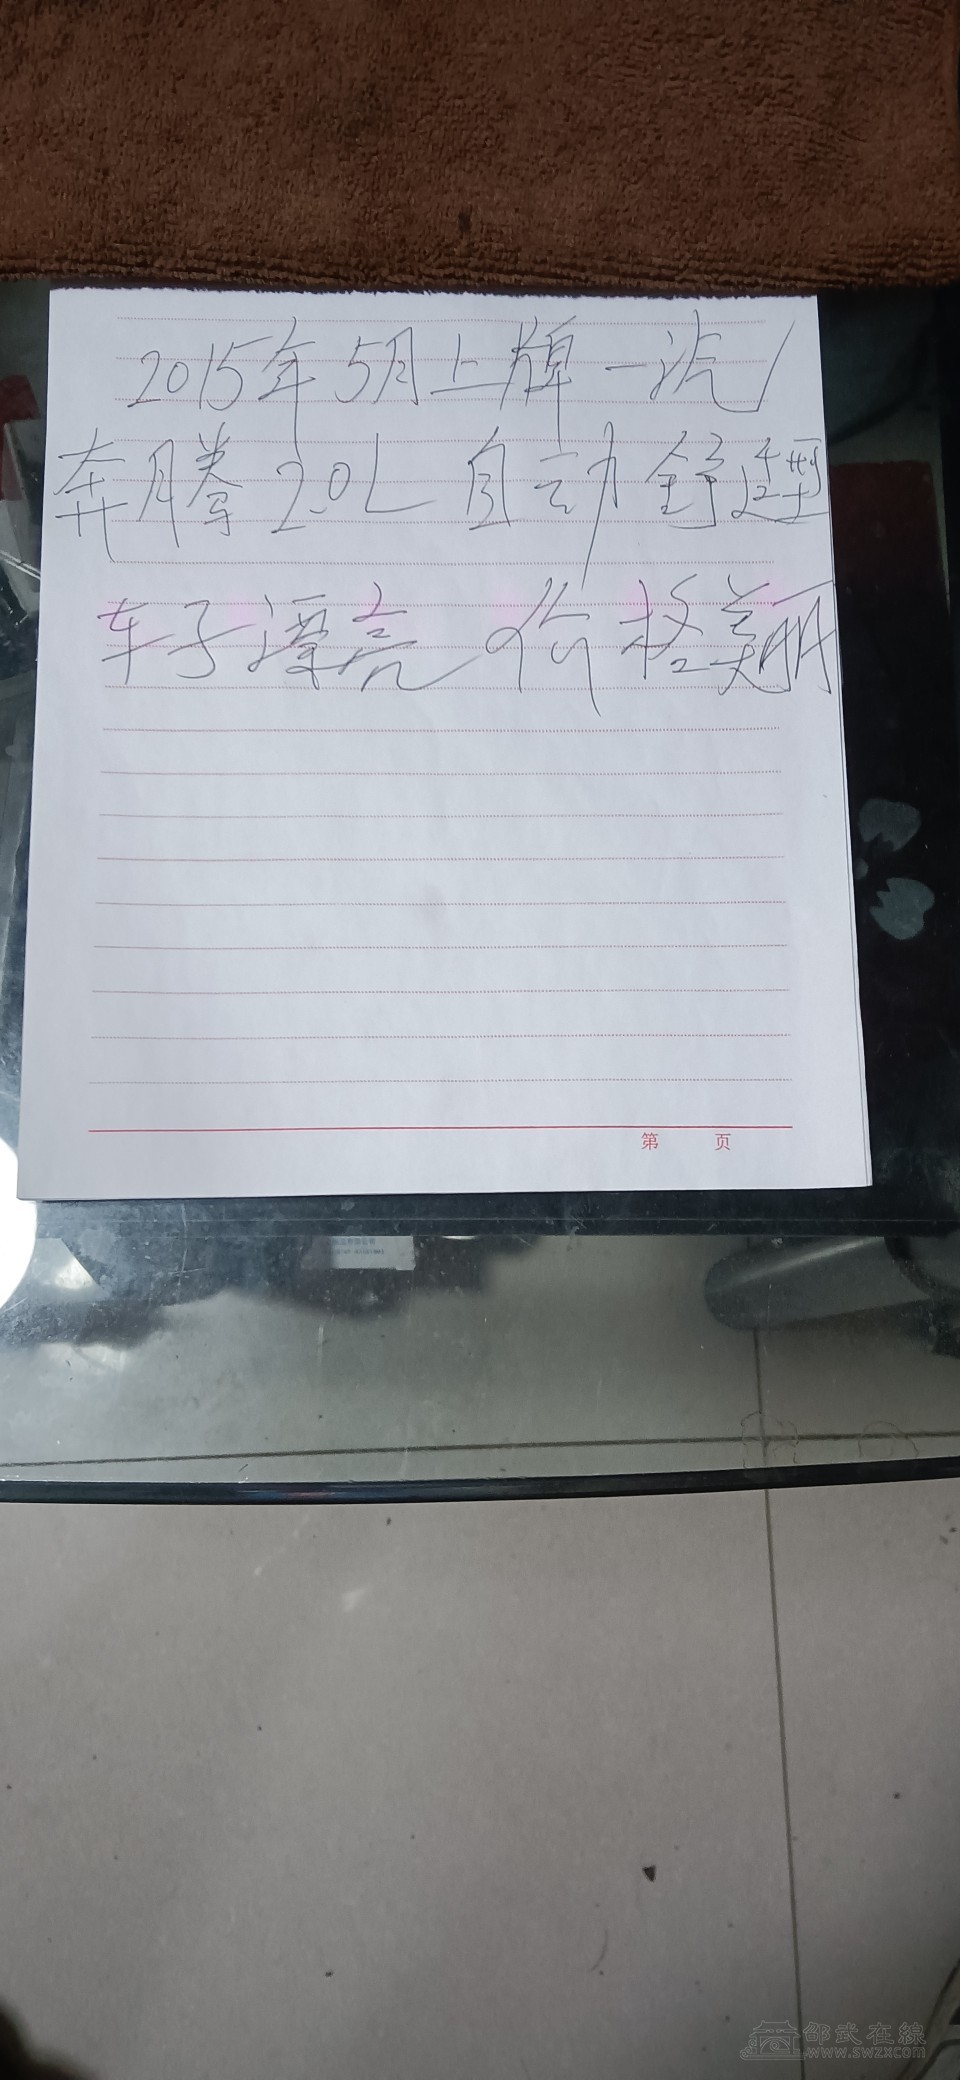 2015年5月上牌一汽
奔腾2.0L 自动舒适型
车子漂亮 价格美丽
第 页
邵武在線
www.swzxcom